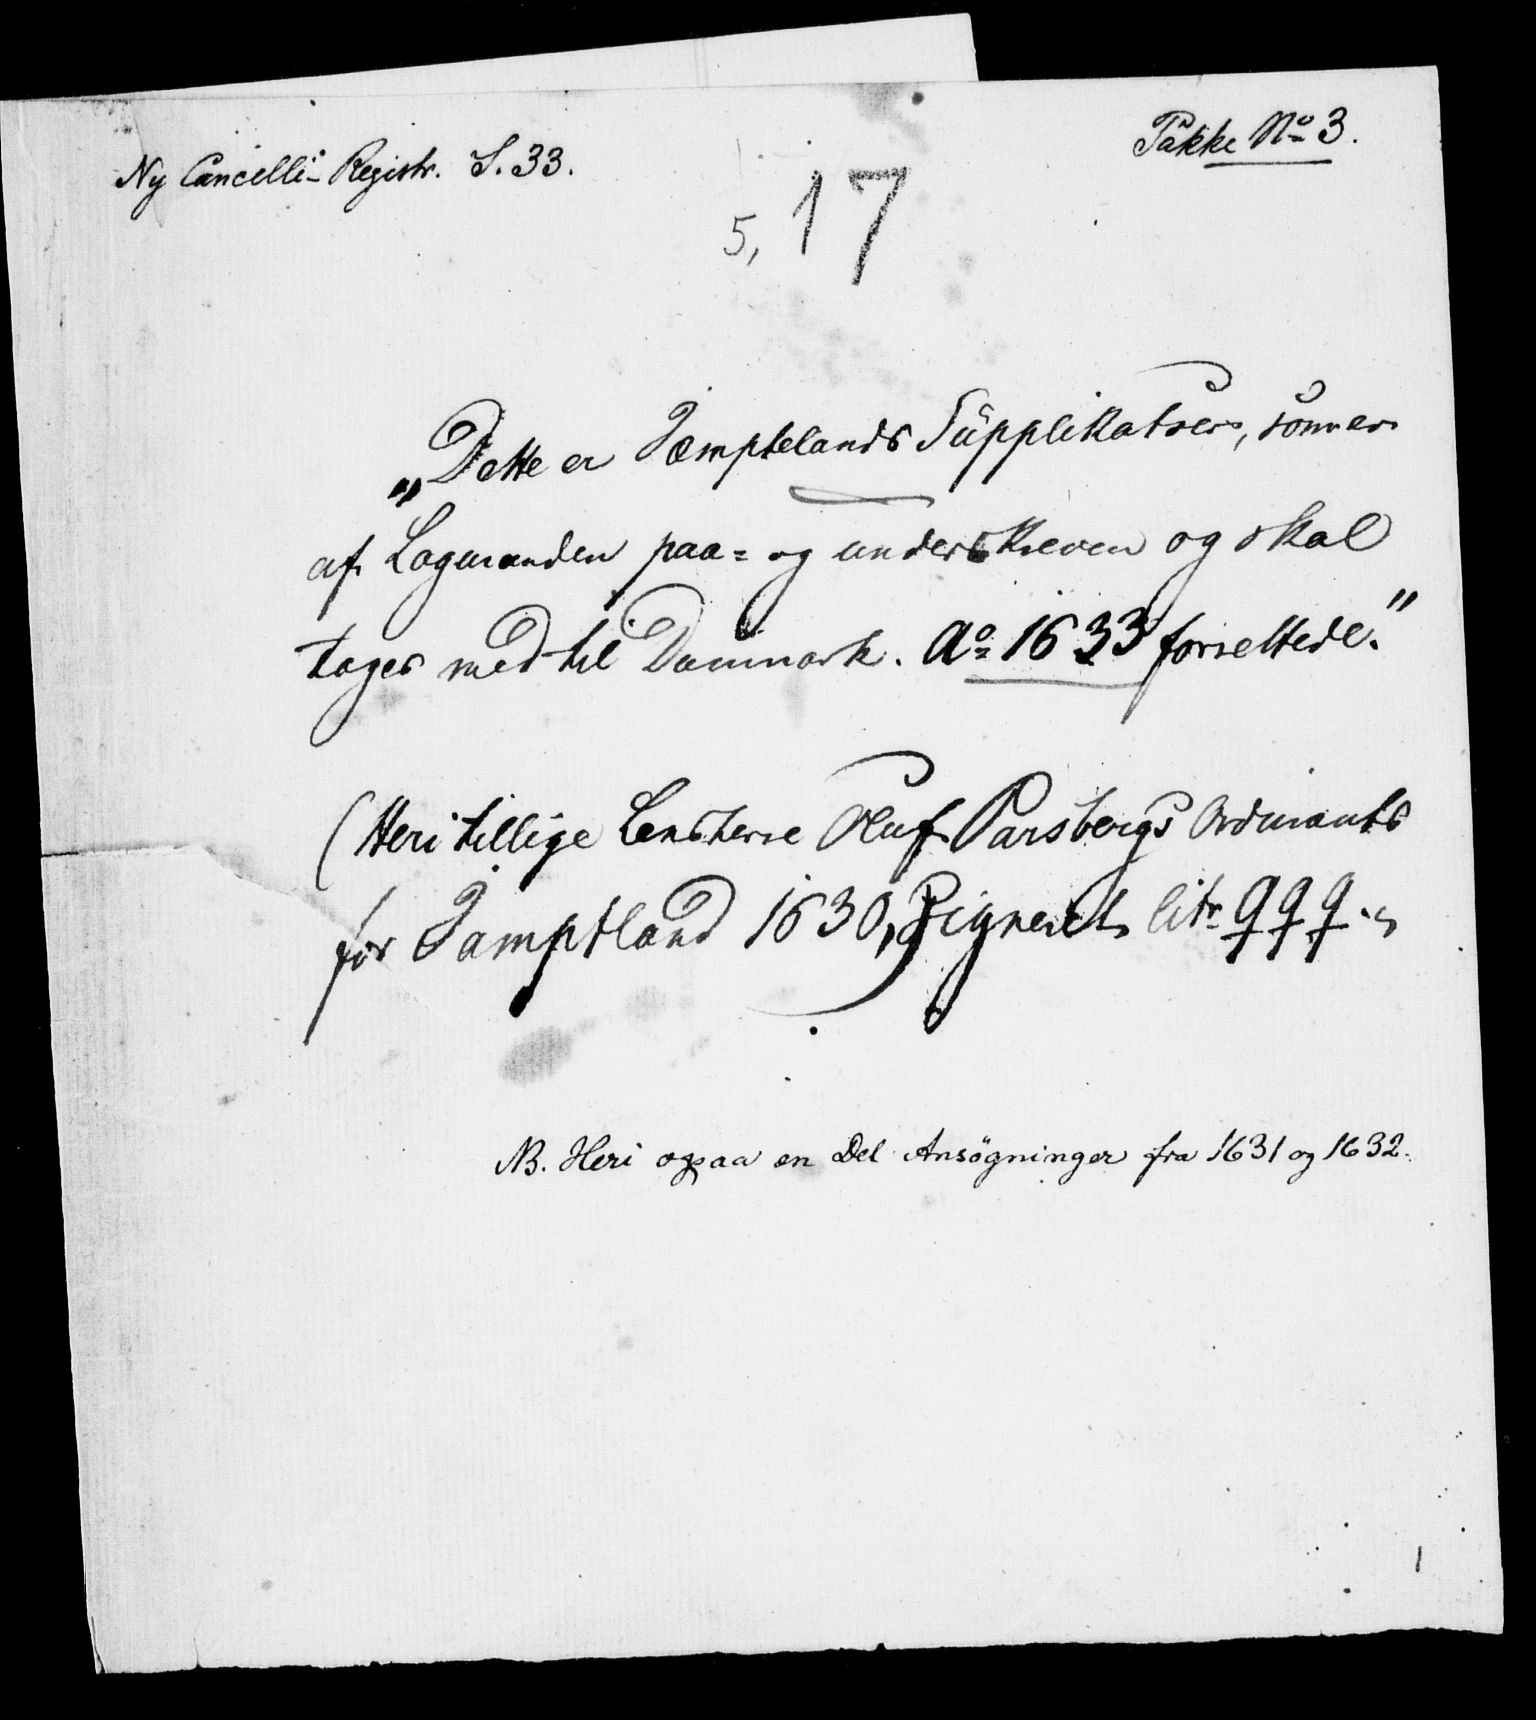 Ny Cancelli- Registr. S. 33.
Pakke No 3.
5, 17
„Dette er Jæmptelands Supplikatser, som er
af Lagmanden paa= og underskreven og skal
tages med til Danmark. Ao 1633 forrettede."
(Heri tillige Lensherre Oluf Parsbergs Ordinants
for Jamptland 1630, Signeret litr qqq.)
NB. Heri ogsaa en Del Ansögninger fra 1631 og 1632.
1